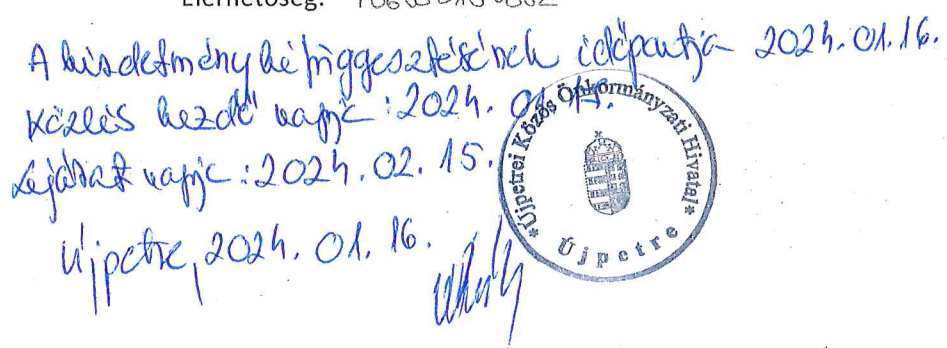 Elérhetőség:
A hirdetmény kifüggesztésének időpontja 2024. 01. 16.
Közlés kezdő napja: 2024. 01. 15.
Lejárat napja: 2024. 02. 15.
Újpetre, 2024. 01. 16.
*Újpetrei Közös Önkormányzati Hivatal*
Újpetre